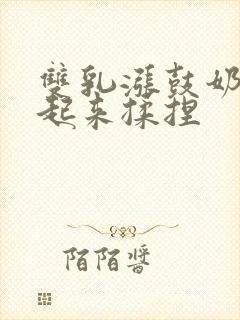 雙乳漲鼓奶
起来揉捏
陌陌醬